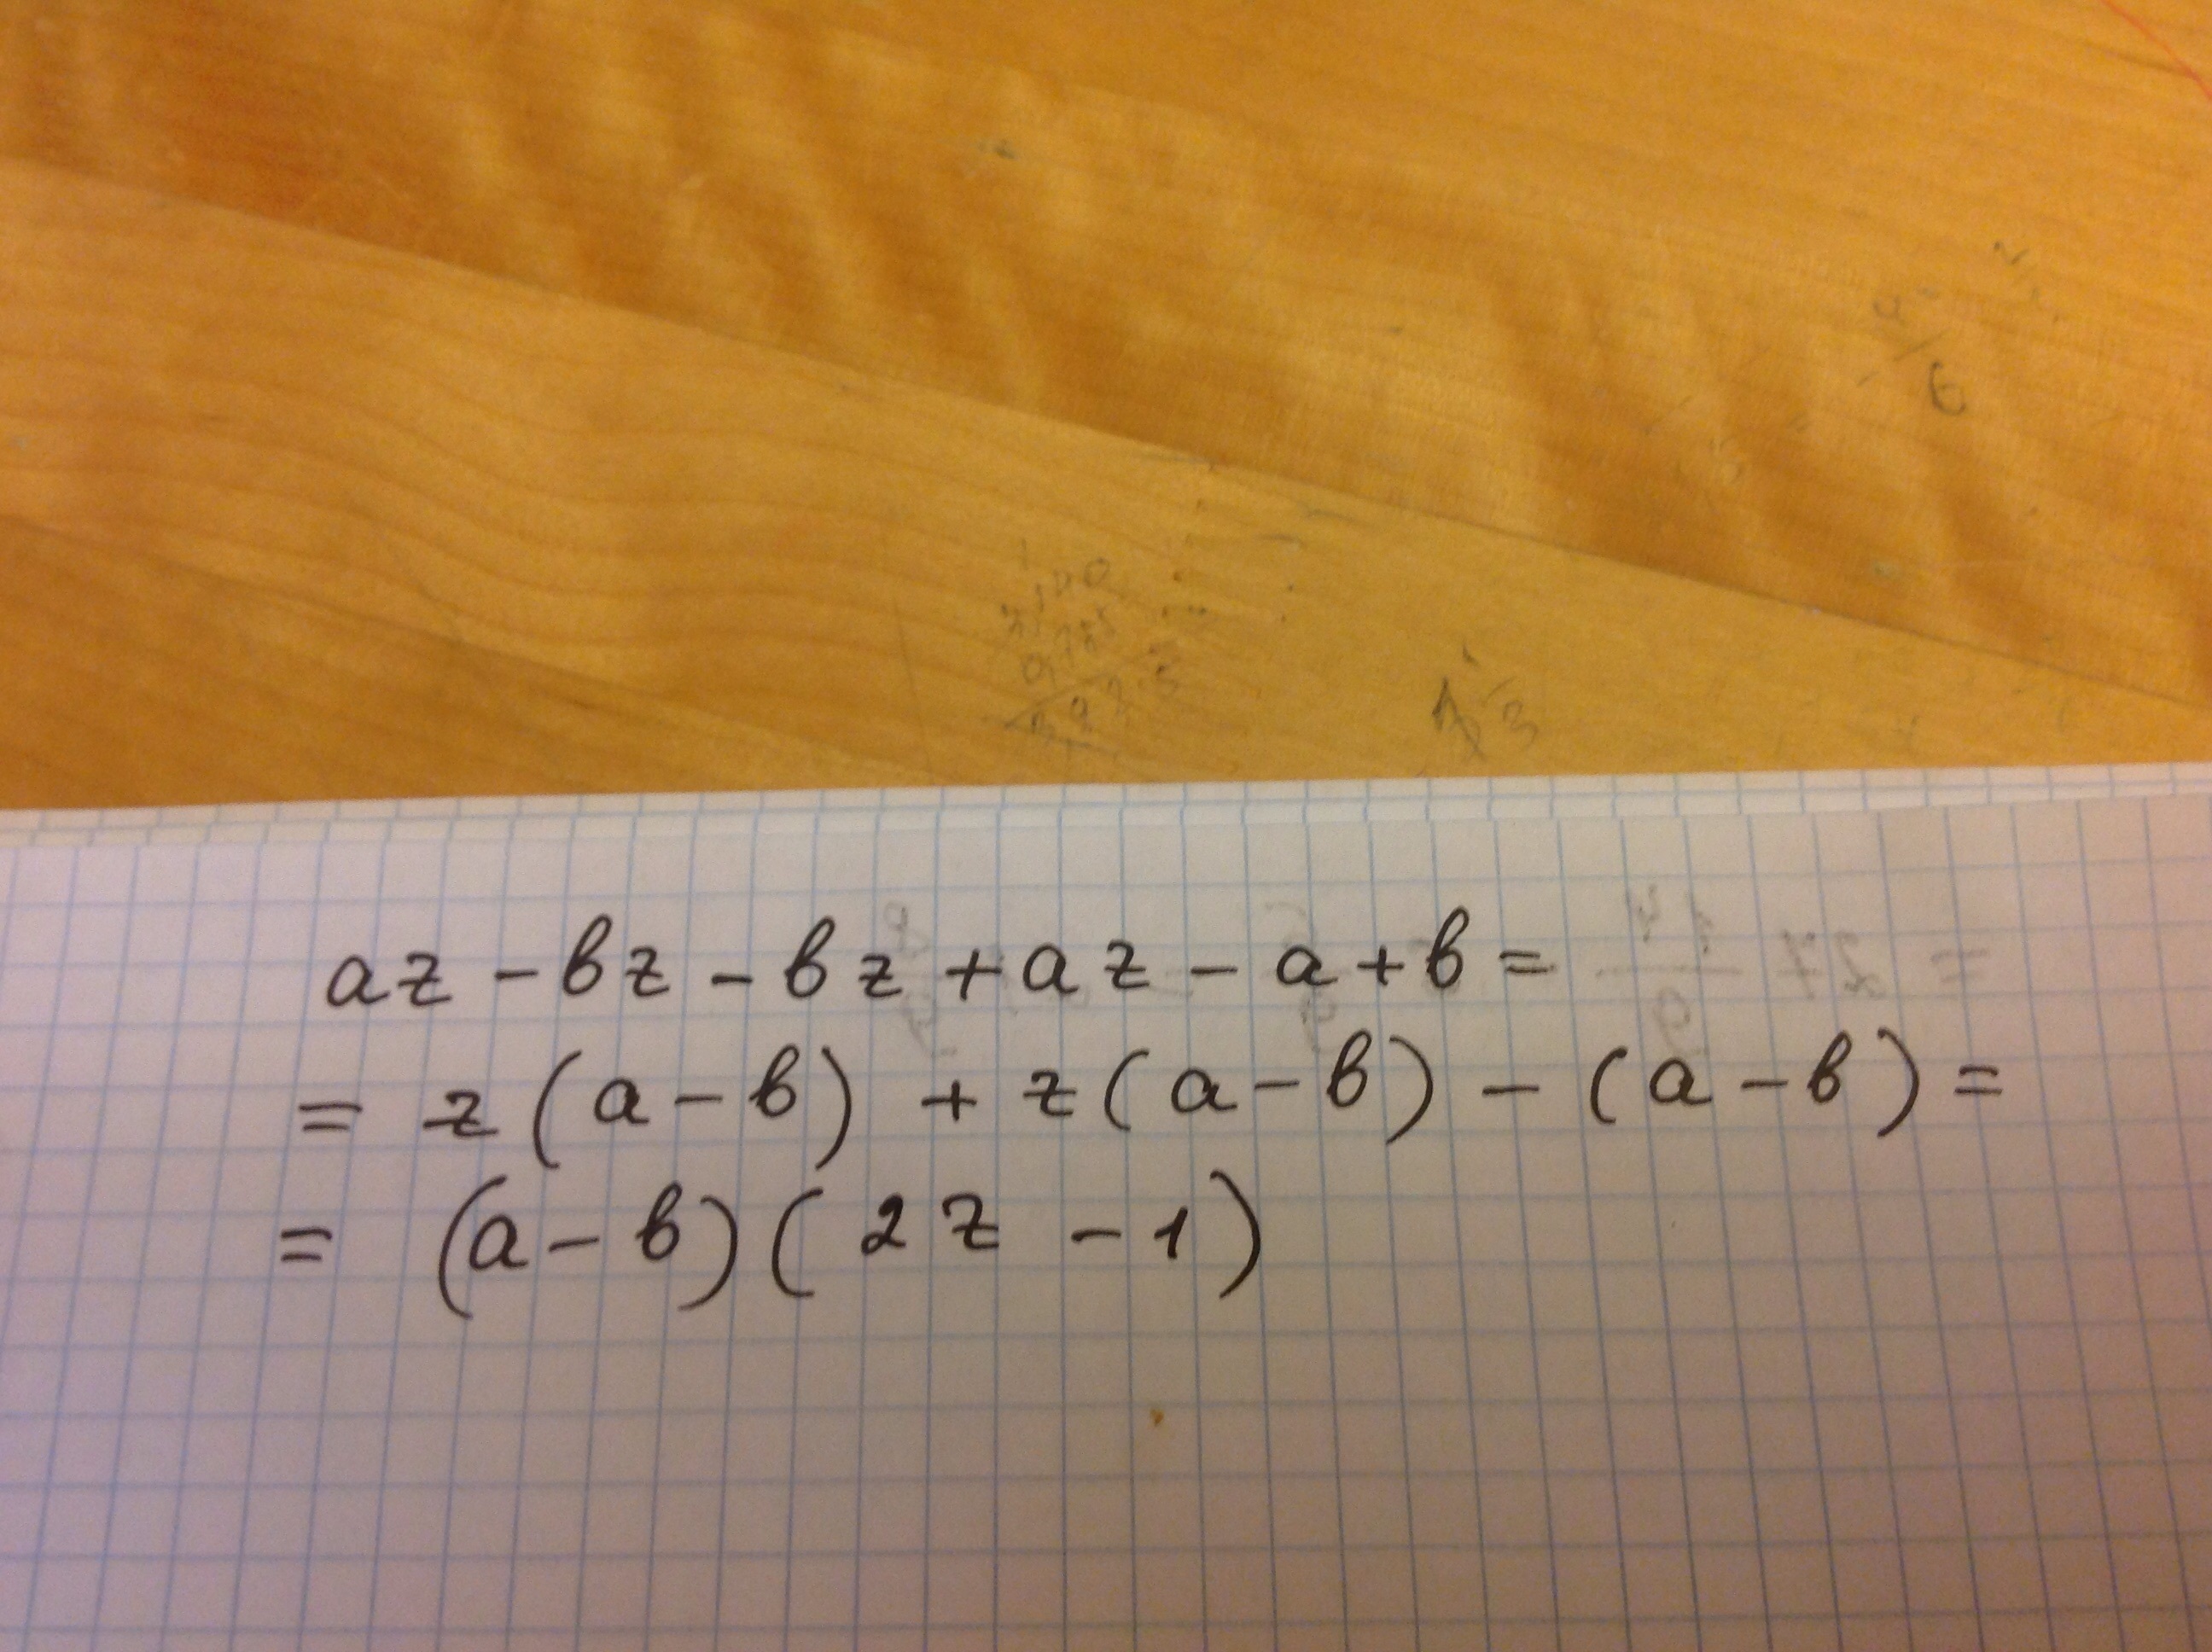 az - bz - bz + az - a + b =
= z (a - b) + z (a - b) - (a - b) =
= (a - b) (2z - 1)